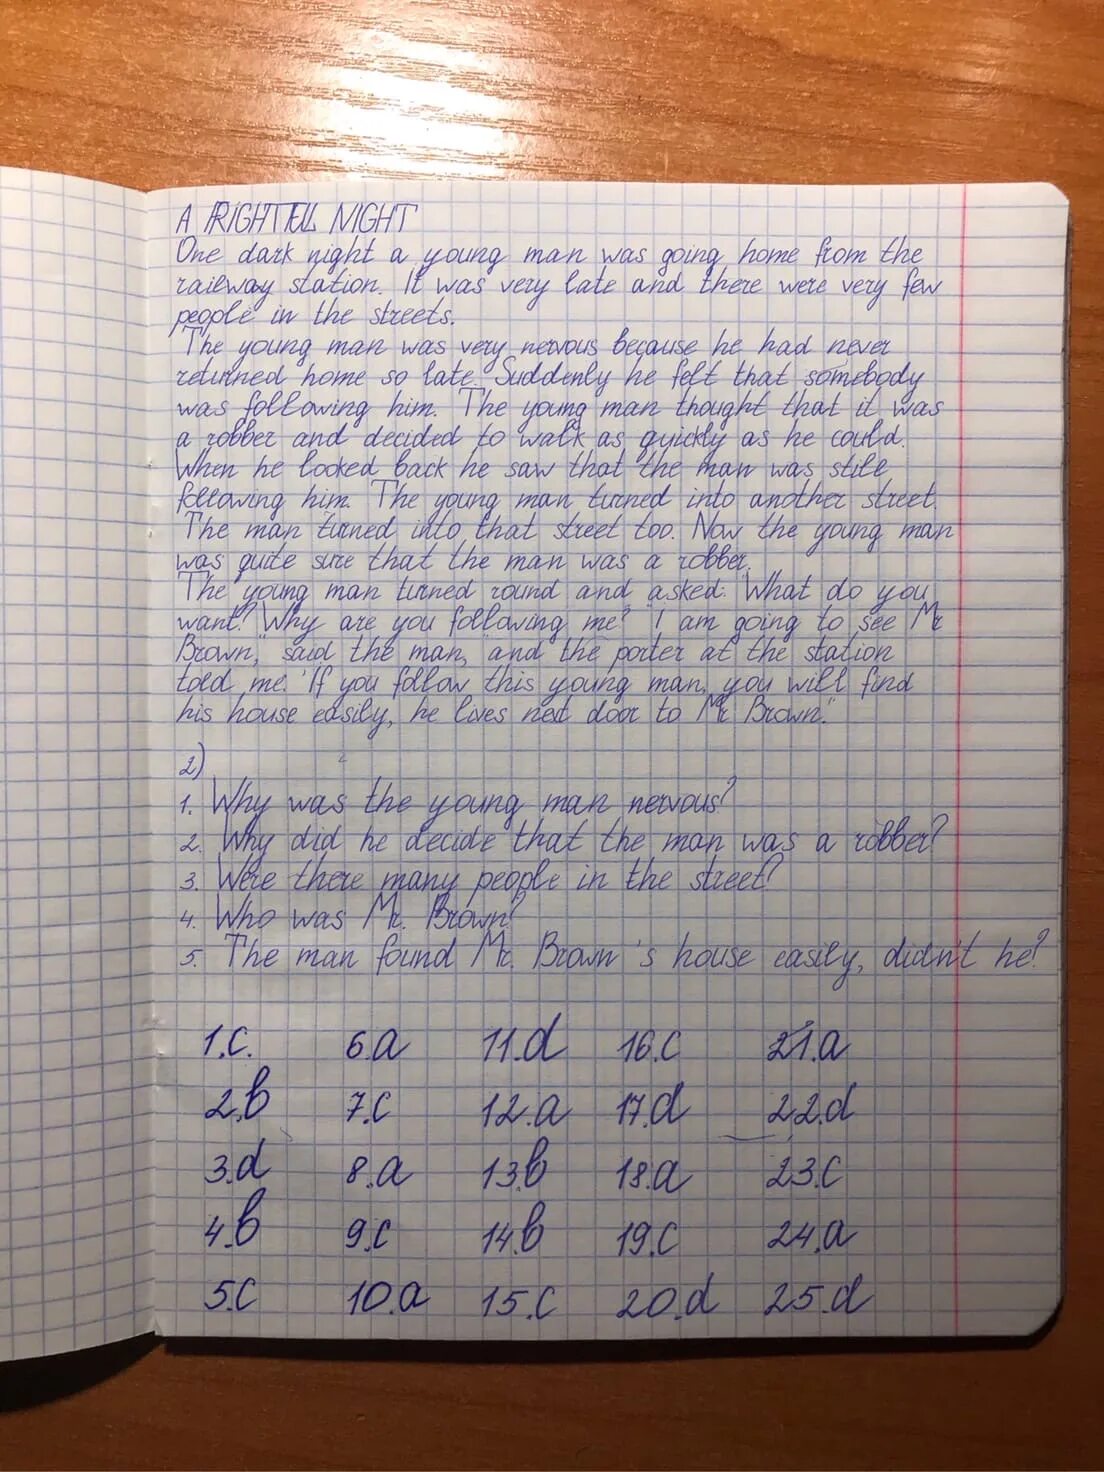 A FRIGHTFUL NIGHT
One dark night a young man was going home from the
railway station. It was very late and there were very few
people in the streets.
The young man was very nervous because he had never
returned home so late. Suddenly he felt that somebody
was following him. The young man thought that it was
a robber and decided to walk as quickly as he could.
When he looked back he saw that the man was still
following him. The young man turned into another street.
The man turned into that street too. Now the young man
was quite sure that the man was a robber.
The young man turned round and asked: "What do you
want? Why are you following me?" "I am going to see Mr
Brown," said the man, "and the porter at the station
told me: 'If you follow this young man, you will find
his house easily, he lives next door to Mr Brown."
2)
1. Why was the young man nervous?
2. Why did he decide that the man was a robber?
3. Were there many people in the street?
4. Who was Mr. Brown?
5. The man found Mr. Brown's house easily, didn't he?
1.c. 6.a 11.d 16.c 21.a
2.b 7.c 12.a 17.d 22.d
3.d 8.a 13.b 18.a 23.c
4.b 9.c 14.b 19.c 24.a
5.c 10.a 15.c 20.d 25.d